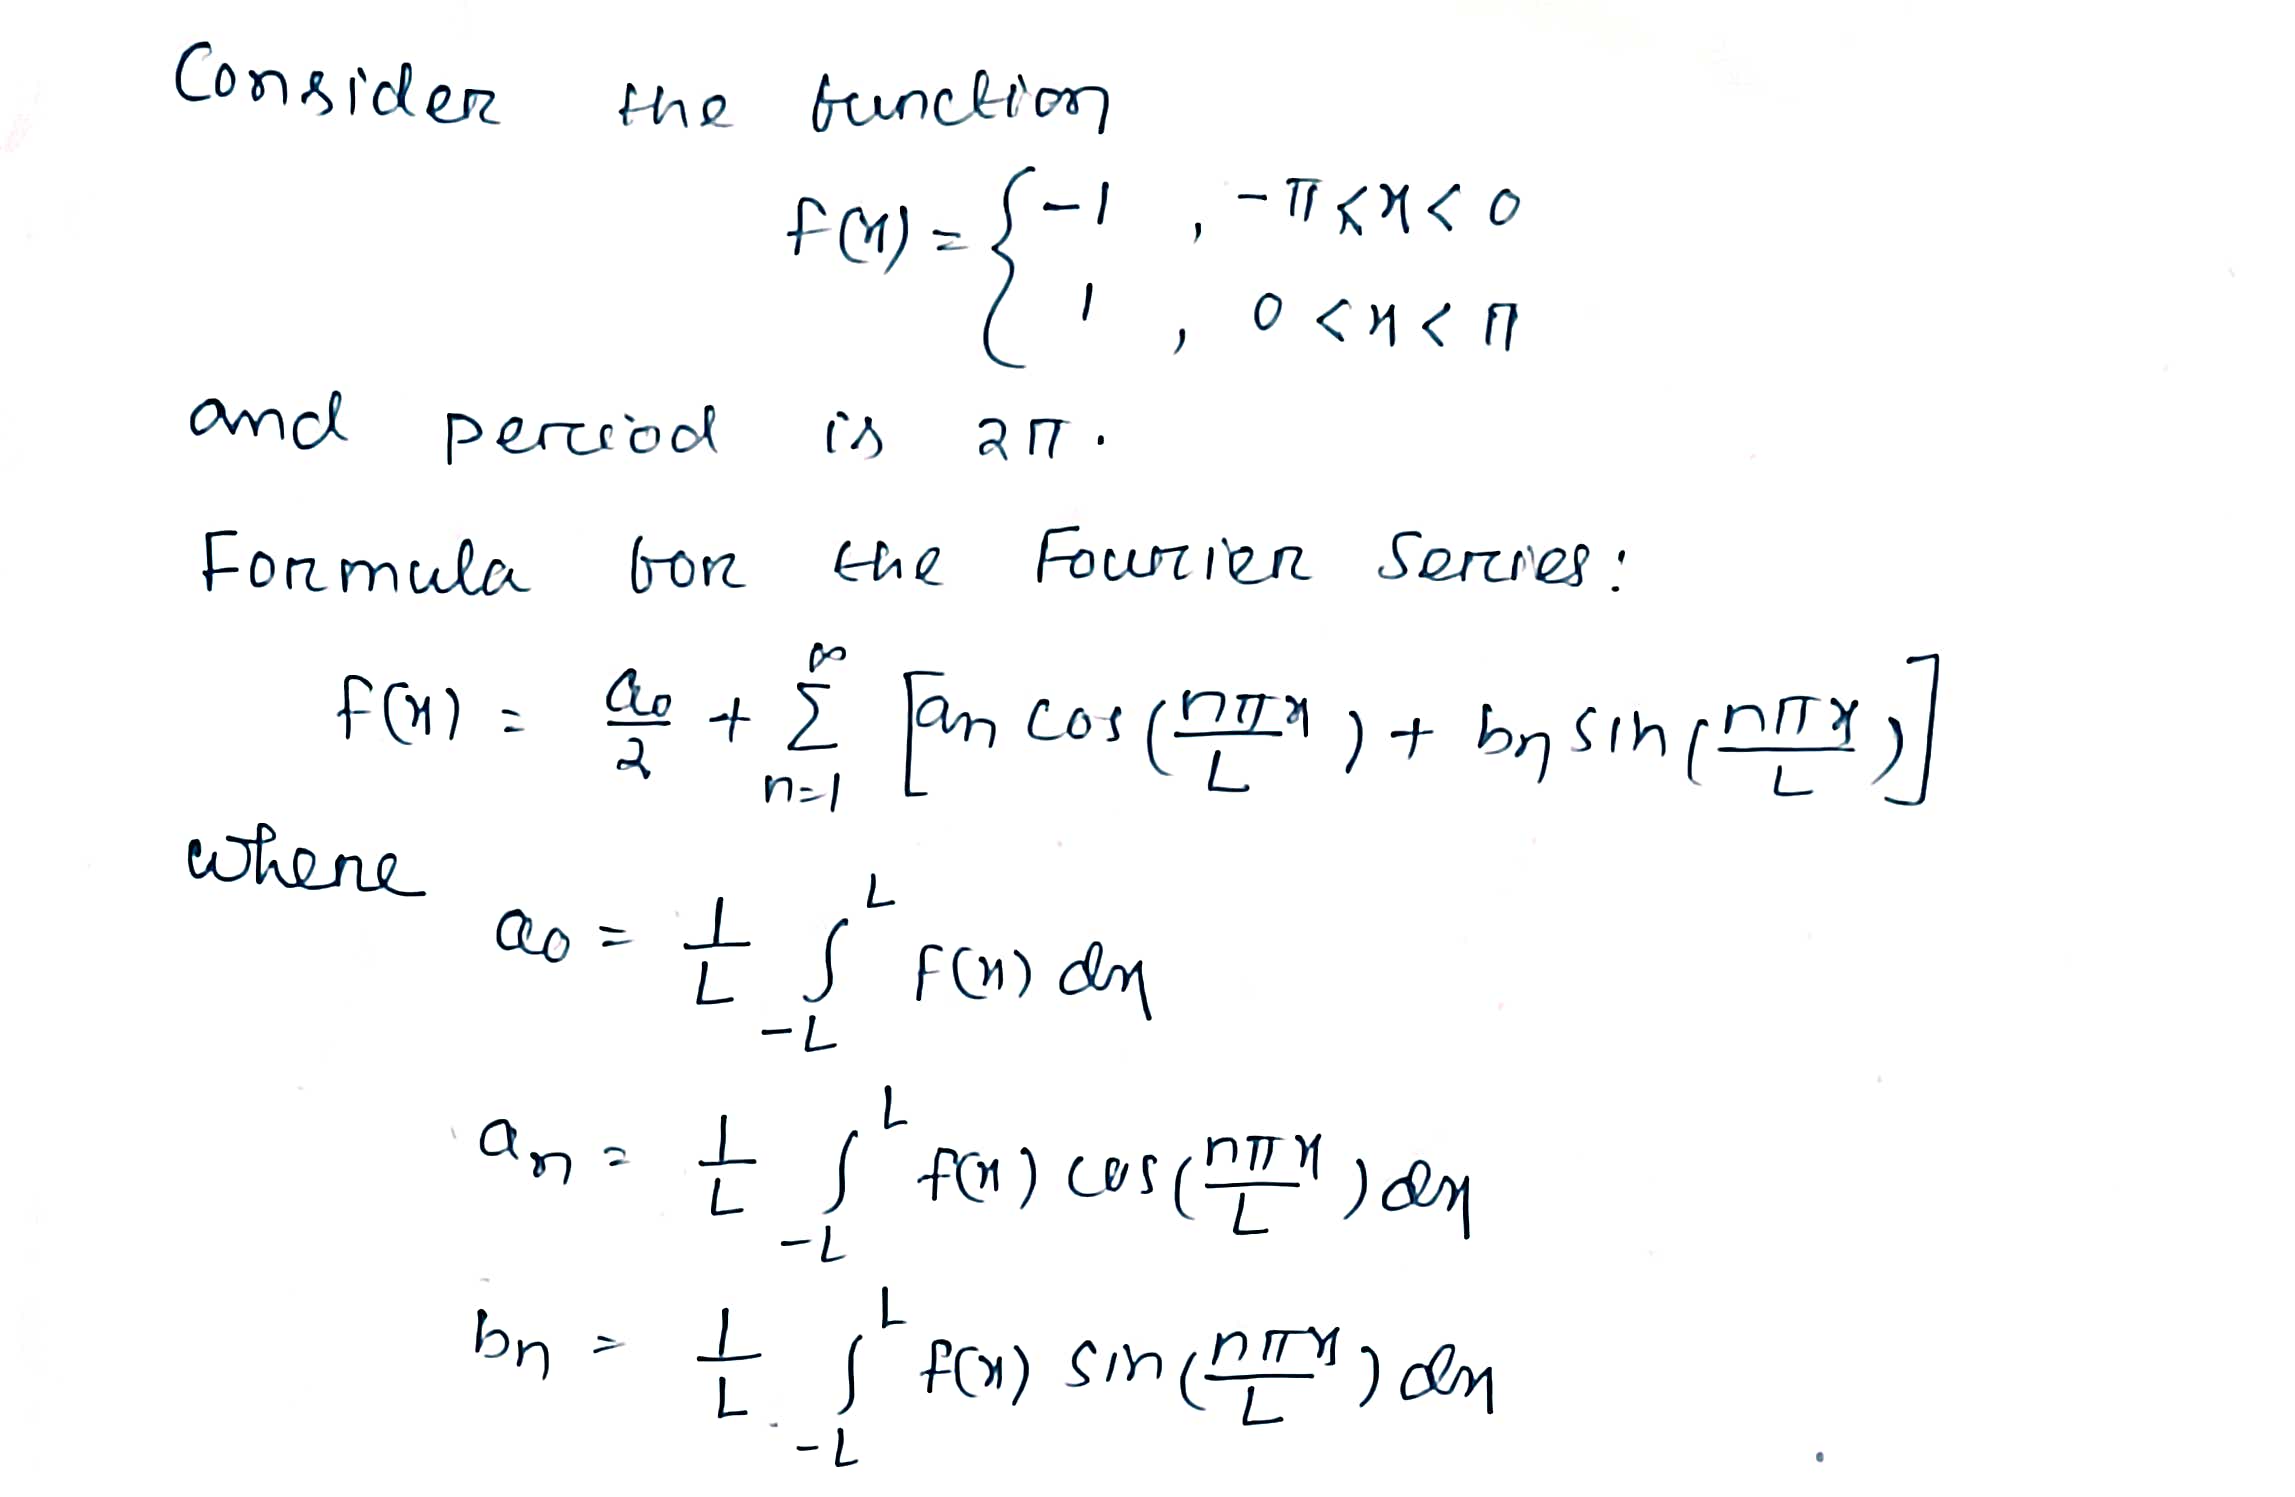 Consider the function
f(x) = { -1 , -π < x < 0
1 , 0 < x < π
and period is 2π.
Formula for the Fourier Series:
f(x) = a₀/2 + ∑_{n=1}^{∞} [an cos(nπx/L) + bn sin(nπx/L)]
where
a₀ = 1/L ∫_{-L}^{L} f(x) dx
an = 1/L ∫_{-L}^{L} f(x) cos(nπx/L) dx
bn = 1/L ∫_{-L}^{L} f(x) sin(nπx/L) dx